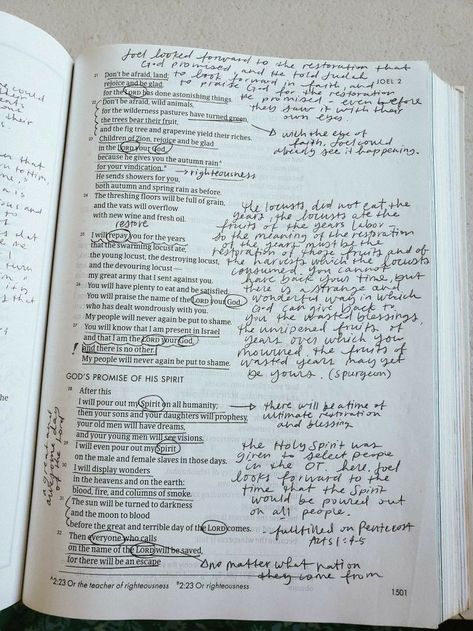 Joel looked forward to the restoration that
God promised and He told Judah
to look forward in faith and
to praise God for the restoration
He promised - even before
they saw it with their
own eyes.
JOEL 2
21 Don't be afraid, land;
rejoice and be glad,
for the LORD has done astonishing things.
22 Don't be afraid, wild animals,
for the wilderness pastures have turned green,
the trees bear their fruit,
and the fig tree and grapevine yield their riches.
→ with the eye of
faith, Joel could
already see it happening.
23 Children of Zion, rejoice and be glad
in the LORD your God,
because he gives you the autumn rain^A
for your vindication.^B
→ righteousness
He sends showers for you,
both autumn and spring rain as before.
24 The threshing floors will be full of grain,
and the vats will overflow
with new wine and fresh oil.
restore
25 I will repay you for the years
that the swarming locust ate,
the young locust, the destroying locust,
and the devouring locust —
my great army that I sent against you.
26 You will have plenty to eat and be satisfied.
You will praise the name of the LORD your God,
who has dealt wondrously with you.
My people will never again be put to shame.
27 You will know that I am present in Israel
and that I am the LORD your God,
and there is no other.
My people will never again be put to shame.
the locusts did not eat the
years, the locusts ate the
fruits of the years labor -
so the meaning of the restoration
of the years must be the
restoration of those fruits and of
the harvest which the locusts
consumed. You cannot
have back your time, but
there is a strange and
wonderful way in which
God can give back to
you the wasted blessings
the unripened fruits of
years over which you
mourned. the fruits of
wasted years may yet
be yours. (Spurgeon)
GOD'S PROMISE OF HIS SPIRIT
28 After this
I will pour out my Spirit on all humanity;
then your sons and your daughters will prophesy,
your old men will have dreams,
and your young men will see visions.
→ there will be a time of
ultimate restoration
and blessing
29 I will even pour out my Spirit
on the male and female slaves in those days.
30 I will display wonders
in the heavens and on the earth:
blood, fire, and columns of smoke.
31 The sun will be turned to darkness
and the moon to blood
before the great and terrible day of the LORD comes.
the Holy Spirit was
given to select people
in the OT. here, Joel
looks forward to the
time that the Spirit
would be poured out
on all people.
- fulfilled on Pentecost
Acts 1:4-5
32 Then everyone who calls
on the name of the LORD will be saved,
for there will be an escape
→ no matter what nation
they come from
^A 2:23 Or the teacher of righteousness ^B 2:23 Or righteousness
1501